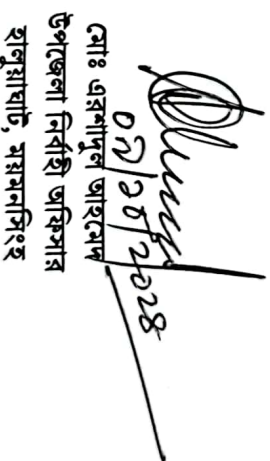 ০৯/১০/২০২৪
মোঃ এরশাদুল আহমেদ
উপজেলা নির্বাহী অফিসার
হালুয়াঘাট, ময়মনসিংহ